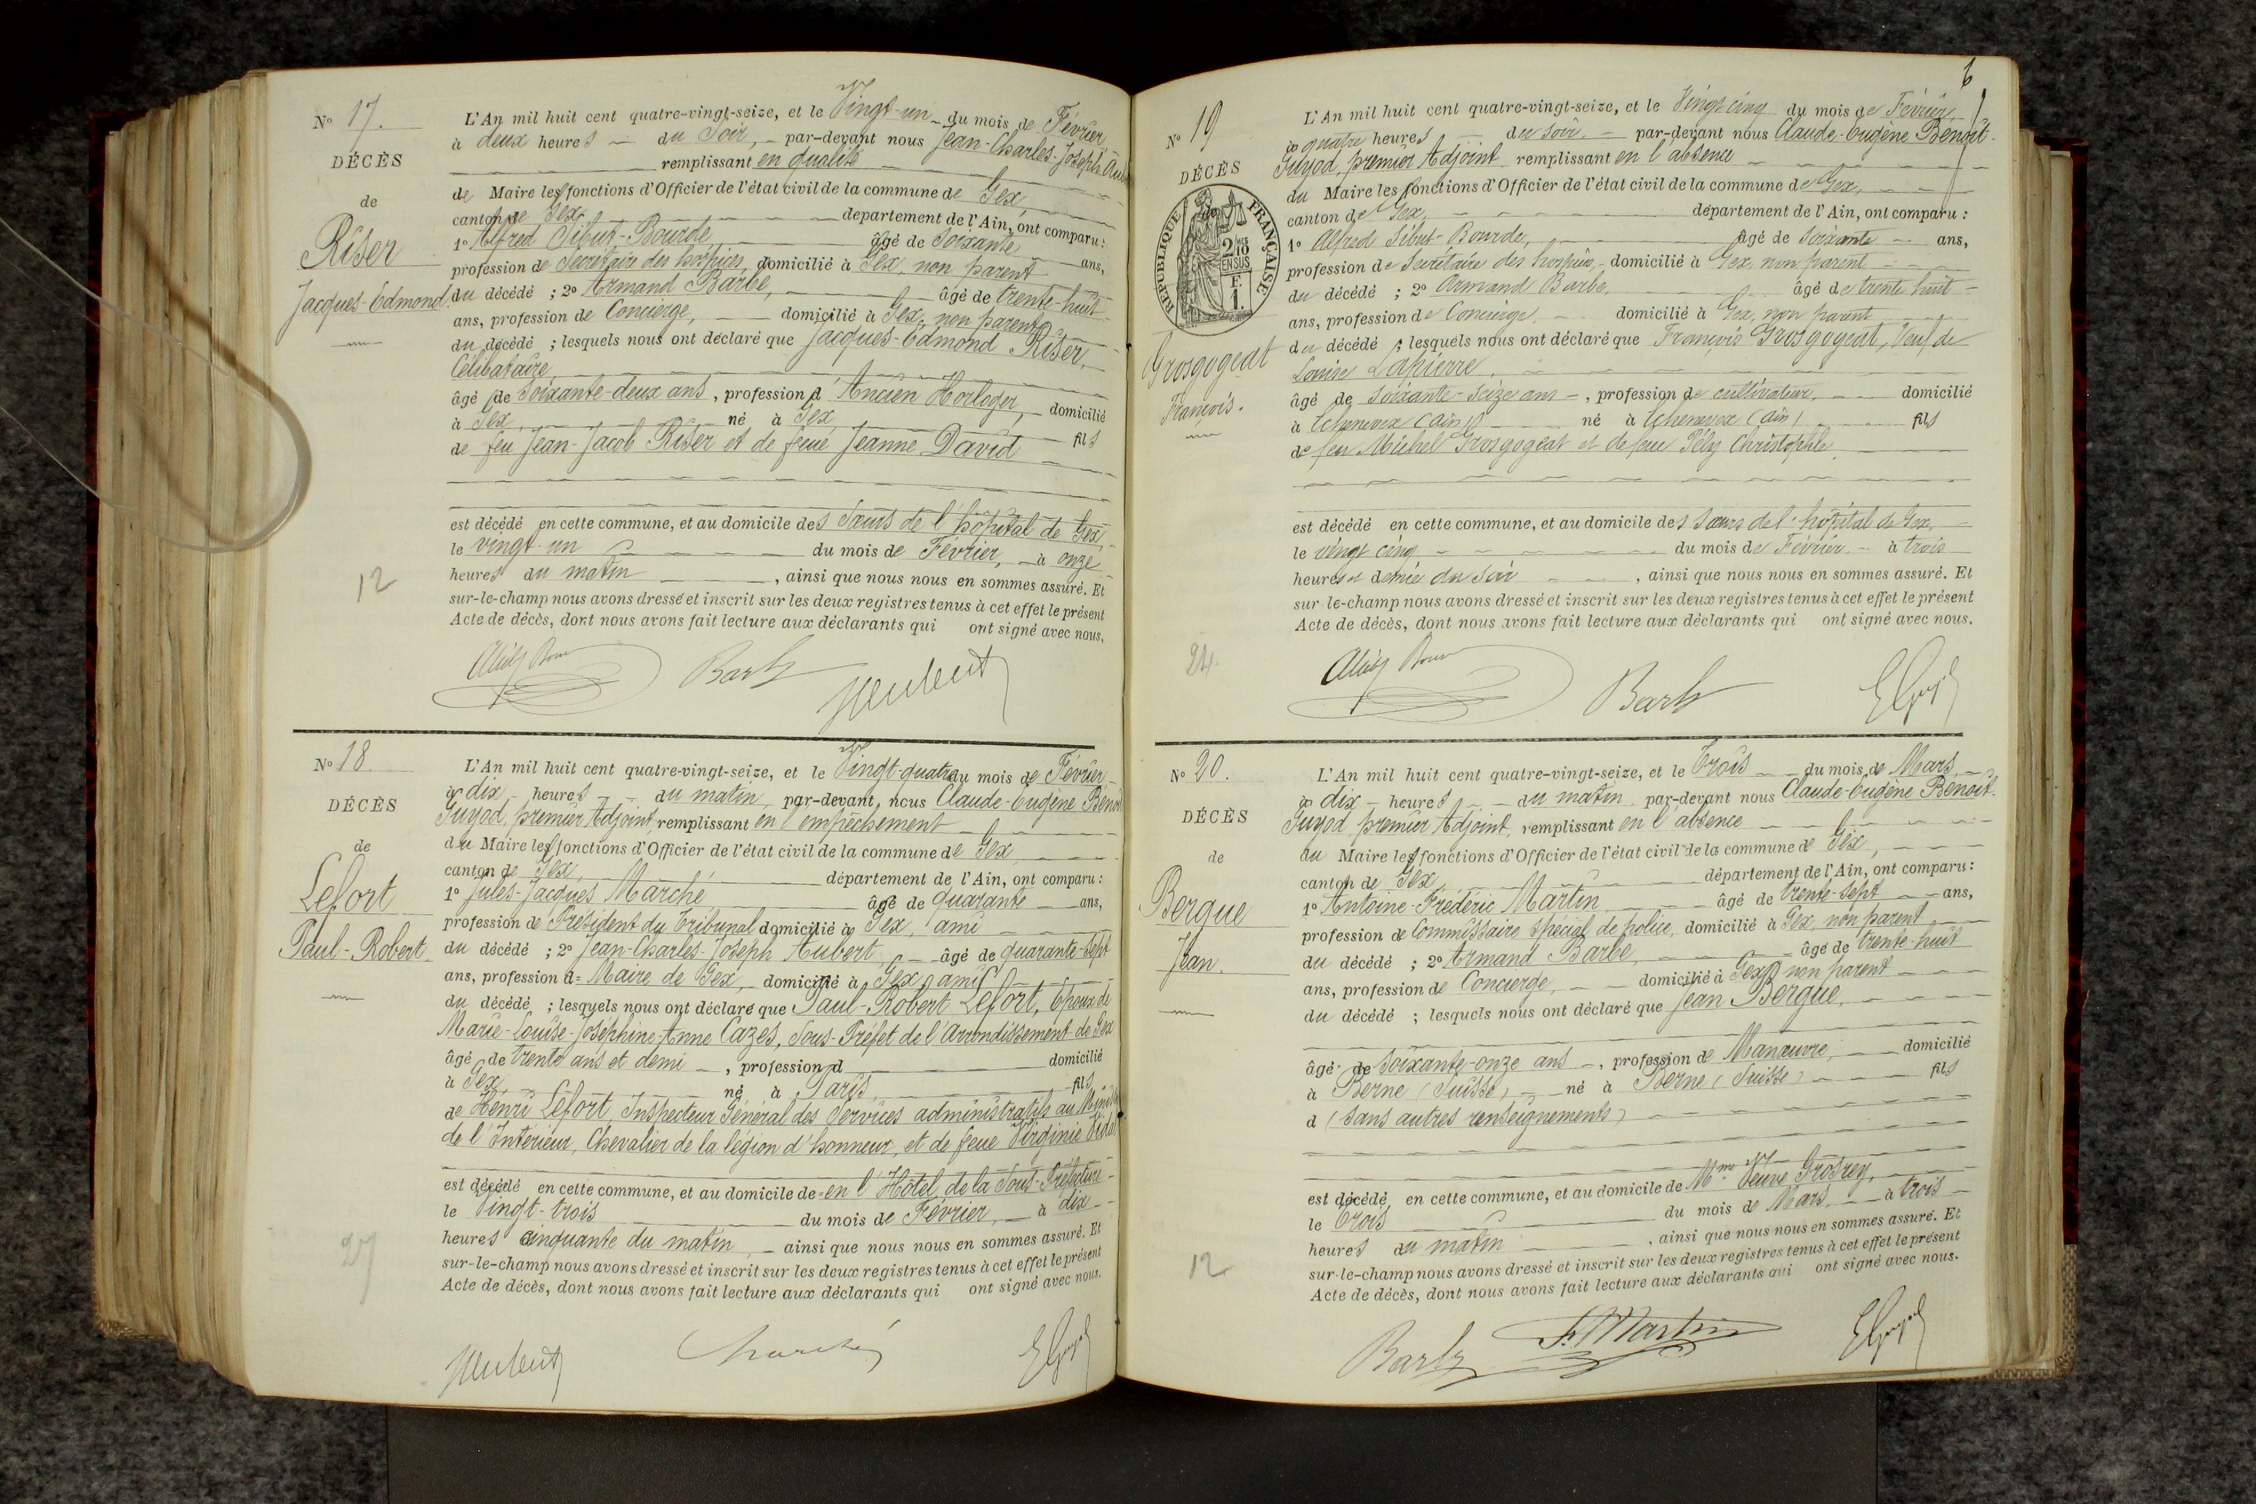 No 17.
DÉCÈS
de
Riser
Jacques-Edmond.
12
L'An mil huit cent quatre-vingt-seize, et le Vingt-un du mois de Février
à deux heures du Soir, par-devant nous Jean-Charles-Joseph
remplissant en qualité
de Maire les fonctions d'Officier de l'état civil de la commune de Gex,
canton de Gex, département de l'Ain, ont comparu :
1o Alfred Sibut-Bourde âgé de Soixante ans,
profession de Secrétaire des hospices, domicilié à Gex, non parent
du décédé ; 2o Armand Barbe, âgé de trente-huit
ans, profession de Concierge, domicilié à Gex, non parent
du décédé ; lesquels nous ont déclaré que Jacques-Edmond Riser,
Célibataire,
âgé de Soixante-deux ans, profession d'Ancien Horloger, domicilié
à Gex, né à Gex, fils
de feu Jean-Jacob Riser et de feue Jeanne David
est décédé en cette commune, et au domicile des Sœurs de l'hôpital de Gex,
le vingt-un du mois de Février, à onze
heures du matin, ainsi que nous nous en sommes assuré. Et
sur-le-champ nous avons dressé et inscrit sur les deux registres tenus à cet effet le présent
Acte de décès, dont nous avons fait lecture aux déclarants qui ont signé avec nous.
No 18
DÉCÈS
de
Lefort
Paul-Robert
27
L'An mil huit cent quatre-vingt-seize, et le Vingt-quatre du mois de Février
à dix heures du matin, par-devant nous Claude-Eugène Benoit
Guyod, premier Adjoint, remplissant en l'empêchement
du Maire les fonctions d'Officier de l'état civil de la commune de Gex,
canton de Gex, département de l'Ain, ont comparu :
1o Jules-Jacques Marché âgé de quarante ans,
profession de Président du Tribunal domicilié à Gex, ami
du décédé ; 2o Jean-Charles-Joseph Aubert, âgé de quarante-sept
ans, profession d= Maire de Gex, domicilié à Gex, ami
du décédé ; lesquels nous ont déclaré que Paul-Robert Lefort, Epoux de
Marie-Louise-Joséphine-Anne Cazes, Sous-Préfet de l'Arrondissement de Gex
âgé de trente ans et demi, profession d domicilié
à Gex né à Paris, fils
de Henri Lefort, Inspecteur Général des Services administratifs au
de l'Intérieur, Chevalier de la légion d'honneur, et de feue Virginie Vidal
est décédé en cette commune, et au domicile de en l'Hôtel de la Sous-Préfecture
le Vingt-trois du mois de Février, à dix
heures cinquante du matin, ainsi que nous nous en sommes assuré. Et
sur-le-champ nous avons dressé et inscrit sur les deux registres tenus à cet effet le présent
Acte de décès, dont nous avons fait lecture aux déclarants qui ont signé avec nous.
6
No 19
DÉCÈS
de
RÉPUBLIQUE FRANÇAISE
2/10 EN SUS
Grosgogeat
François.
24.
L'An mil huit cent quatre-vingt-seize, et le Vingt cinq du mois de Février,
à quatre heures du soir. par-devant nous Claude-Eugène Benoit
Guyod, premier Adjoint remplissant en l'absence
du Maire les fonctions d'Officier de l'état civil de la commune de Gex,
canton de Gex, département de l'Ain, ont comparu :
1o Alfred Sibut-Bourde, âgé de soixante ans,
profession de Secrétaire des hospices, domicilié à Gex, non parent
du décédé ; 2o Armand Barbe, âgé de trente huit
ans, profession de Concierge, domicilié à Gex, non parent
du décédé ; lesquels nous ont déclaré que François Grosgogeat, Veuf de
Louise Lapierre,
âgé de soixante-seize ans, profession de cultivateur, domicilié
à Echenevex (Ain) né à Echenevex (Ain) fils
de feu Michel Grosgogeat et de feue Christophile
est décédé en cette commune, et au domicile des sœurs de l'hôpital de Gex,
le vingt cinq du mois de Février à trois
heures et demie du soir, ainsi que nous nous en sommes assuré. Et
sur le-champ nous avons dressé et inscrit sur les deux registres tenus à cet effet le présent
Acte de décès, dont nous avons fait lecture aux déclarants qui ont signé avec nous.
No 20.
DÉCÈS
de
Bergue
Jean.
12
L'An mil huit cent quatre-vingt-seize, et le Trois du mois de Mars,
à dix heures du matin, par-devant nous Claude-Eugène Benoit
Guyod, premier Adjoint, remplissant en l'absence
du Maire les fonctions d'Officier de l'état civil de la commune de Gex,
canton de Gex département de l'Ain, ont comparu :
1o Antoine-Frédéric Martin âgé de trente-sept ans,
profession de Commissaire spécial de police, domicilié à Gex, non parent
du décédé ; 2o Armand Barbe, âgé de trente-huit
ans, profession de Concierge, domicilié à Gex, non parent
du décédé ; lesquels nous ont déclaré que Jean Bergue,
âgé de soixante-onze ans, profession de Manœuvre, domicilié
à Berne (Suisse) né à Berne (Suisse) fils
d (sans autres renseignements)
est décédé en cette commune, et au domicile de Mme Veuve Grosrey,
le Trois du mois de Mars, à trois
heures du matin, ainsi que nous nous en sommes assuré. Et
sur-le-champ nous avons dressé et inscrit sur les deux registres tenus à cet effet le présent
Acte de décès, dont nous avons fait lecture aux déclarants qui ont signé avec nous.
F. Martin